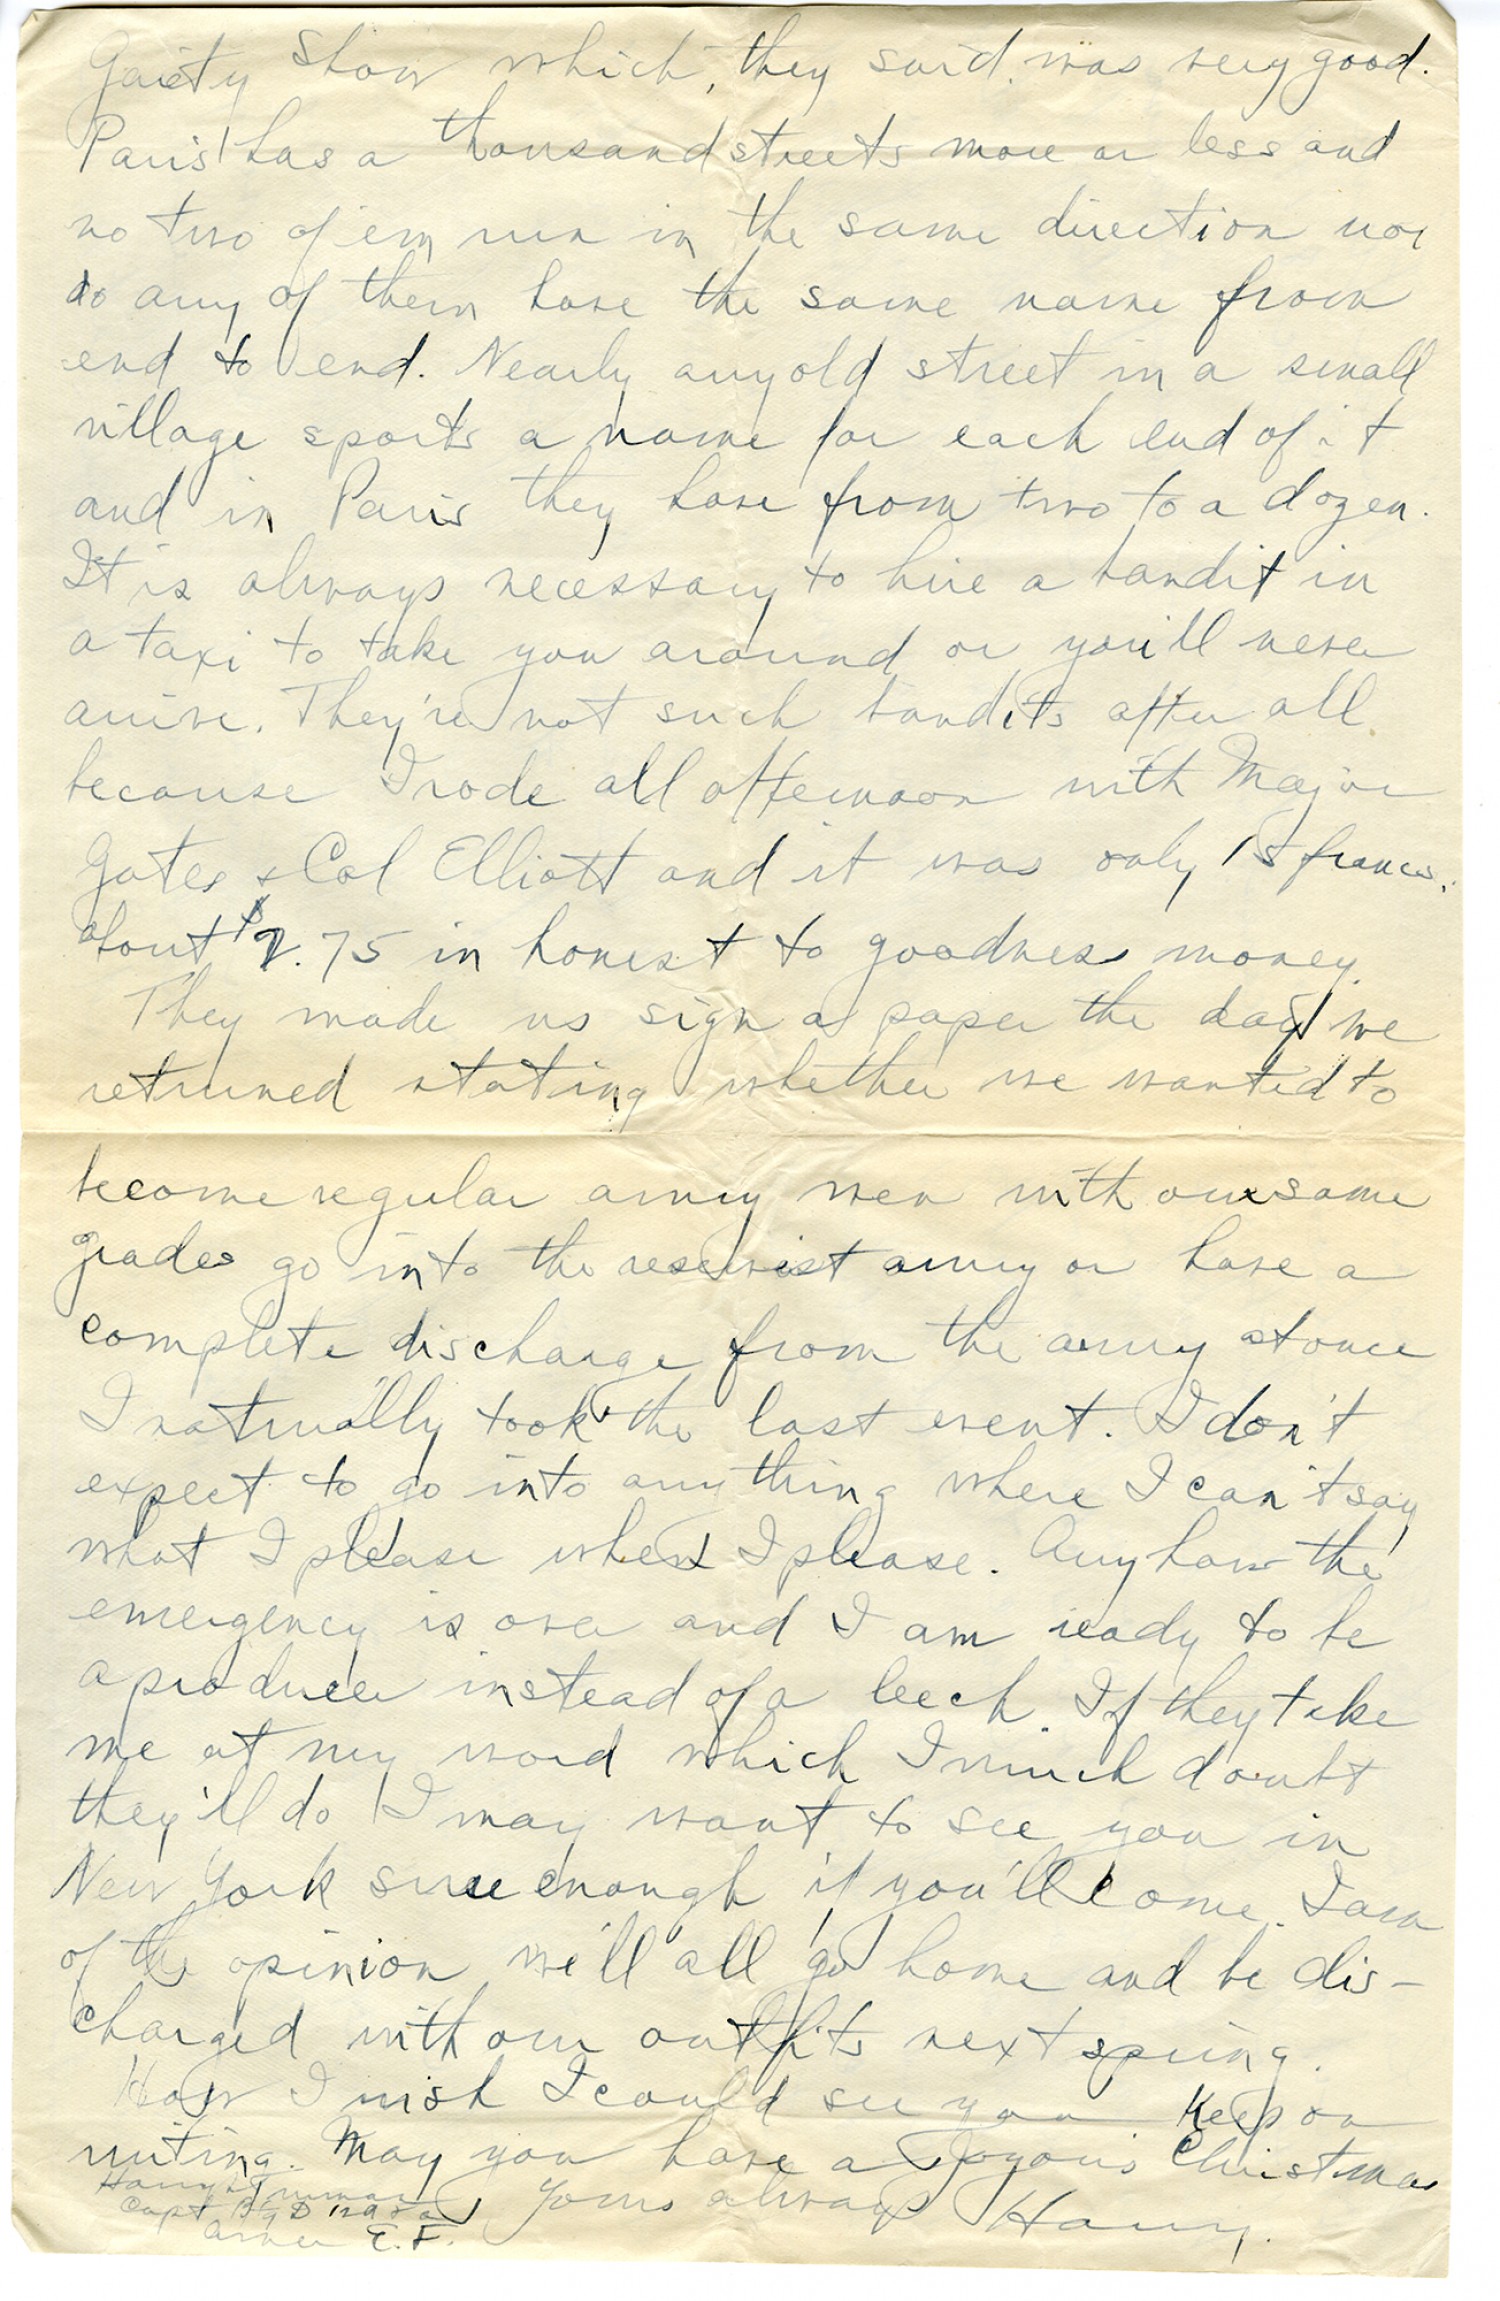 Gaiety Show which, they said, was very good.
Paris has a thousand streets more or less and
no two of em run in the same direction nor
do any of them have the same name from
end to end. Nearly any old street in a small
village sports a name for each end of it
and in Paris they have from two to a dozen.
It is always necessary to hire a bandit in
a taxi to take you around or you'll never
arrive. They're not such bandits after all
because I rode all afternoon with Major
Gates & Col Elliott and it was only 15 francs.
about $2.75 in honest to goodness money.
They made us sign a paper the day we
returned stating whether we wanted to
become regular army men with our same
grades go into the reservist army or have a
complete discharge from the army at once
I naturally took the last event. I don't
expect to go into anything where I can't say
what I please when I please. Anyhow the
emergency is over and I am ready to be
a producer instead of a leech. If they take
me at my word which I much doubt
they'll do I may want to see you in
New York sure enough if you'll come. I am
of the opinion we'll all go home and be dis-
charged with our outfits next spring.
How I wish I could see you Keep on
writing. May you have a Joyous Christmas
Yours always Harry.
Harry S Truman
Capt Bty D 129 FA
Amer E.F.